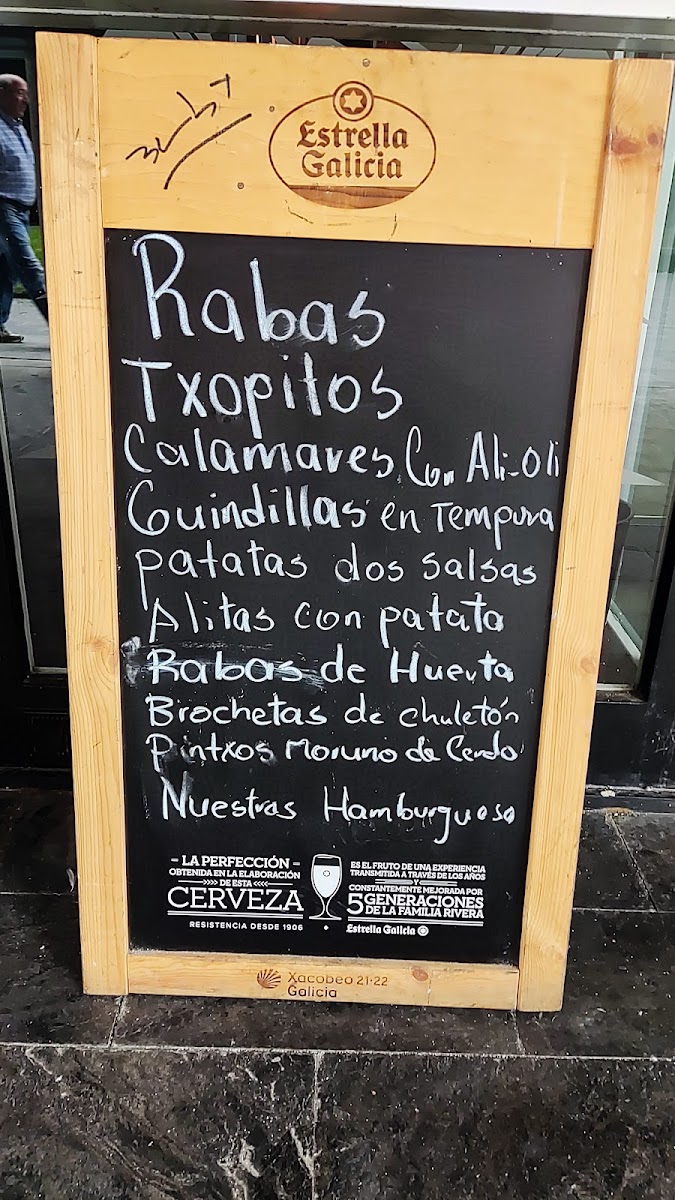 Estrella
Galicia
Rabas
Txopitos
Calamares Con Ali-oli
Guindillas en Tempura
patatas dos salsas
Alitas con patata
Rabas de Huerta
Brochetas de chuletón
Pintxos Moruno de Cerdo
Nuestras Hamburguesa
- LA PERFECCIÓN -
OBTENIDA EN LA ELABORACIÓN
DE ESTA
CERVEZA
RESISTENCIA DESDE 1906
ES EL FRUTO DE UNA EXPERIENCIA
TRANSMITIDA A TRAVÉS DE LOS AÑOS
Y
CONSTANTEMENTE MEJORADA POR
5 GENERACIONES
DE LA FAMILIA RIVERA
Estrella Galicia
Xacobeo 21·22
Galicia